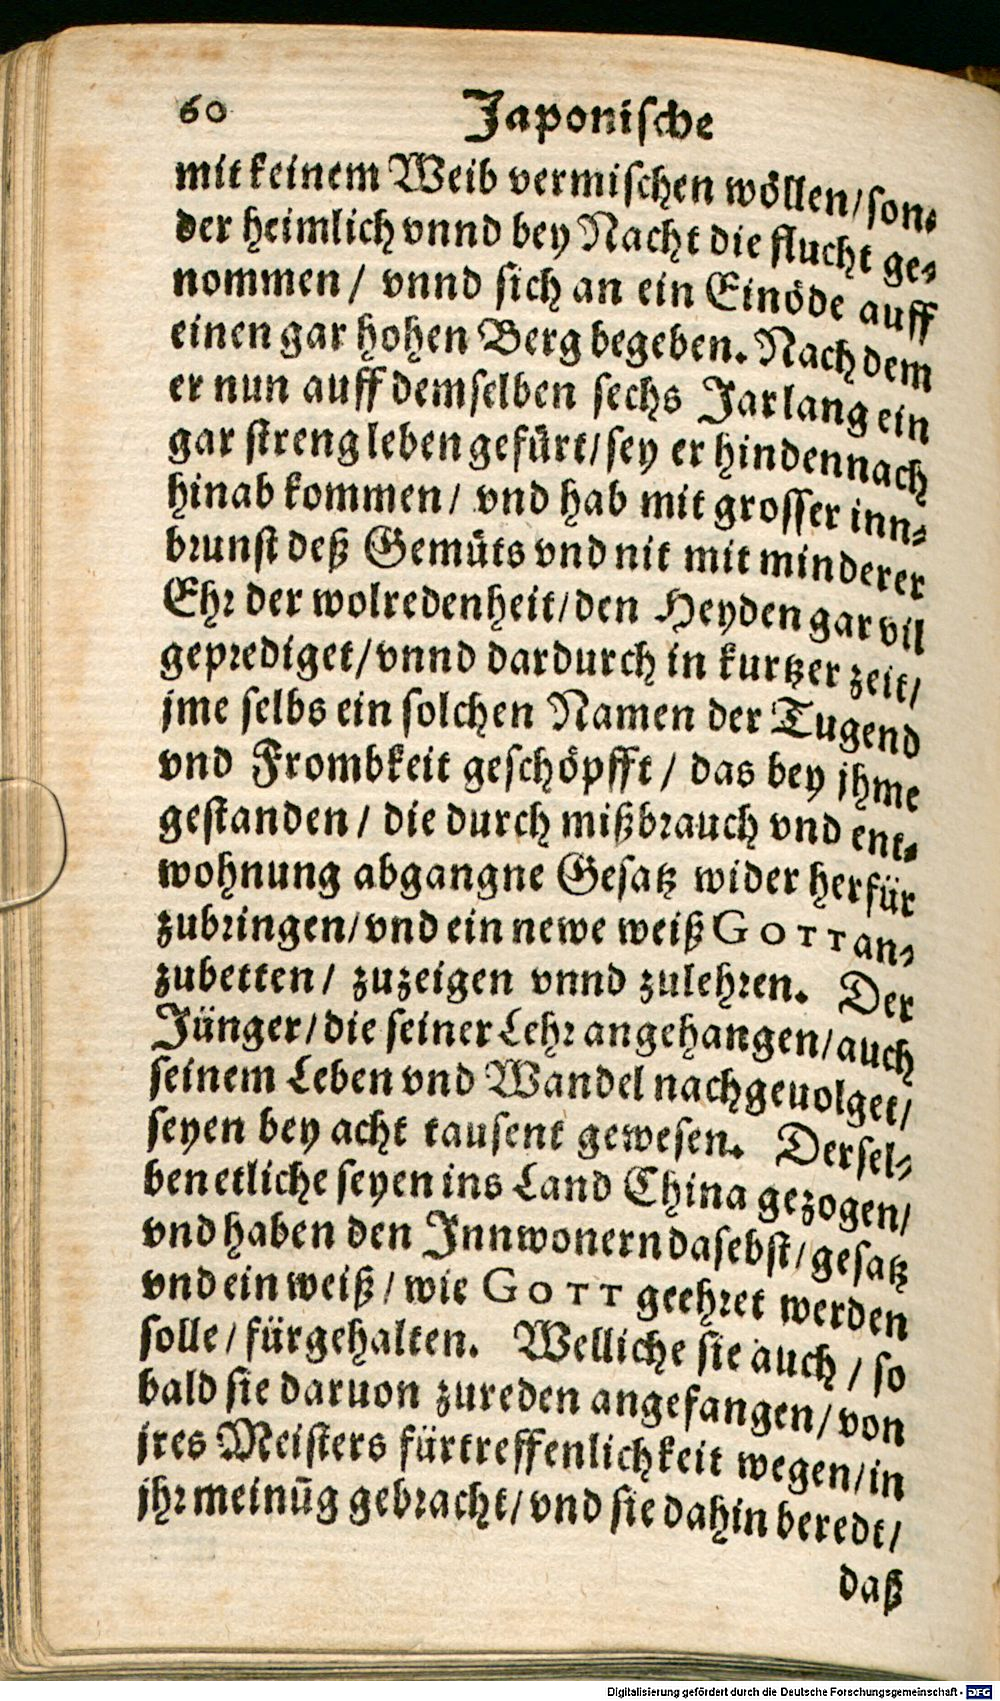 60 Japonische
mit keinem Weib vermischen wöllen / son-
der heimlich vnnd bey Nacht die flucht ge-
nommen / vnnd sich an ein Einöde auff
einen gar hohen Berg begeben. Nach dem
er nun auff demselben sechs Jar lang ein
gar streng leben gefürt / sey er hindennach
hinab kommen / vnd hab mit grosser inn-
brunst deß Gemüts vnd nit mit minderer
Ehr der wolredenheit / den Heyden gar vil
geprediget / vnnd dardurch in kurtzer zeit /
jme selbs ein solchen Namen der Tugend
vnd Frombkeit geschöpfft / das bey jhme
gestanden / die durch mißbrauch vnd ent-
wohnung abgangne Gesatz wider herfür
zubringen / vnd ein newe weiß GOTT an-
zubetten / zuzeigen vnnd zulehren. Der
Jünger / die seiner Lehr angehangen / auch
seinem Leben vnd Wandel nachgeuolget /
seyen bey acht tausent gewesen. Dersel-
ben etliche seyen ins Land China gezogen /
vnd haben den Innwonern dasebst / gesatz
vnd ein weiß / wie GOTT geehret werden
solle / fürgehalten. Welliche sie auch / so
bald sie daruon zureden angefangen / von
jres Meisters fürtreffenlichkeit wegen / in
jhr meinūg gebracht / vnd sie dahin beredt /
daß
Digitalisierung gefördert durch die Deutsche Forschungsgemeinschaft - DFG